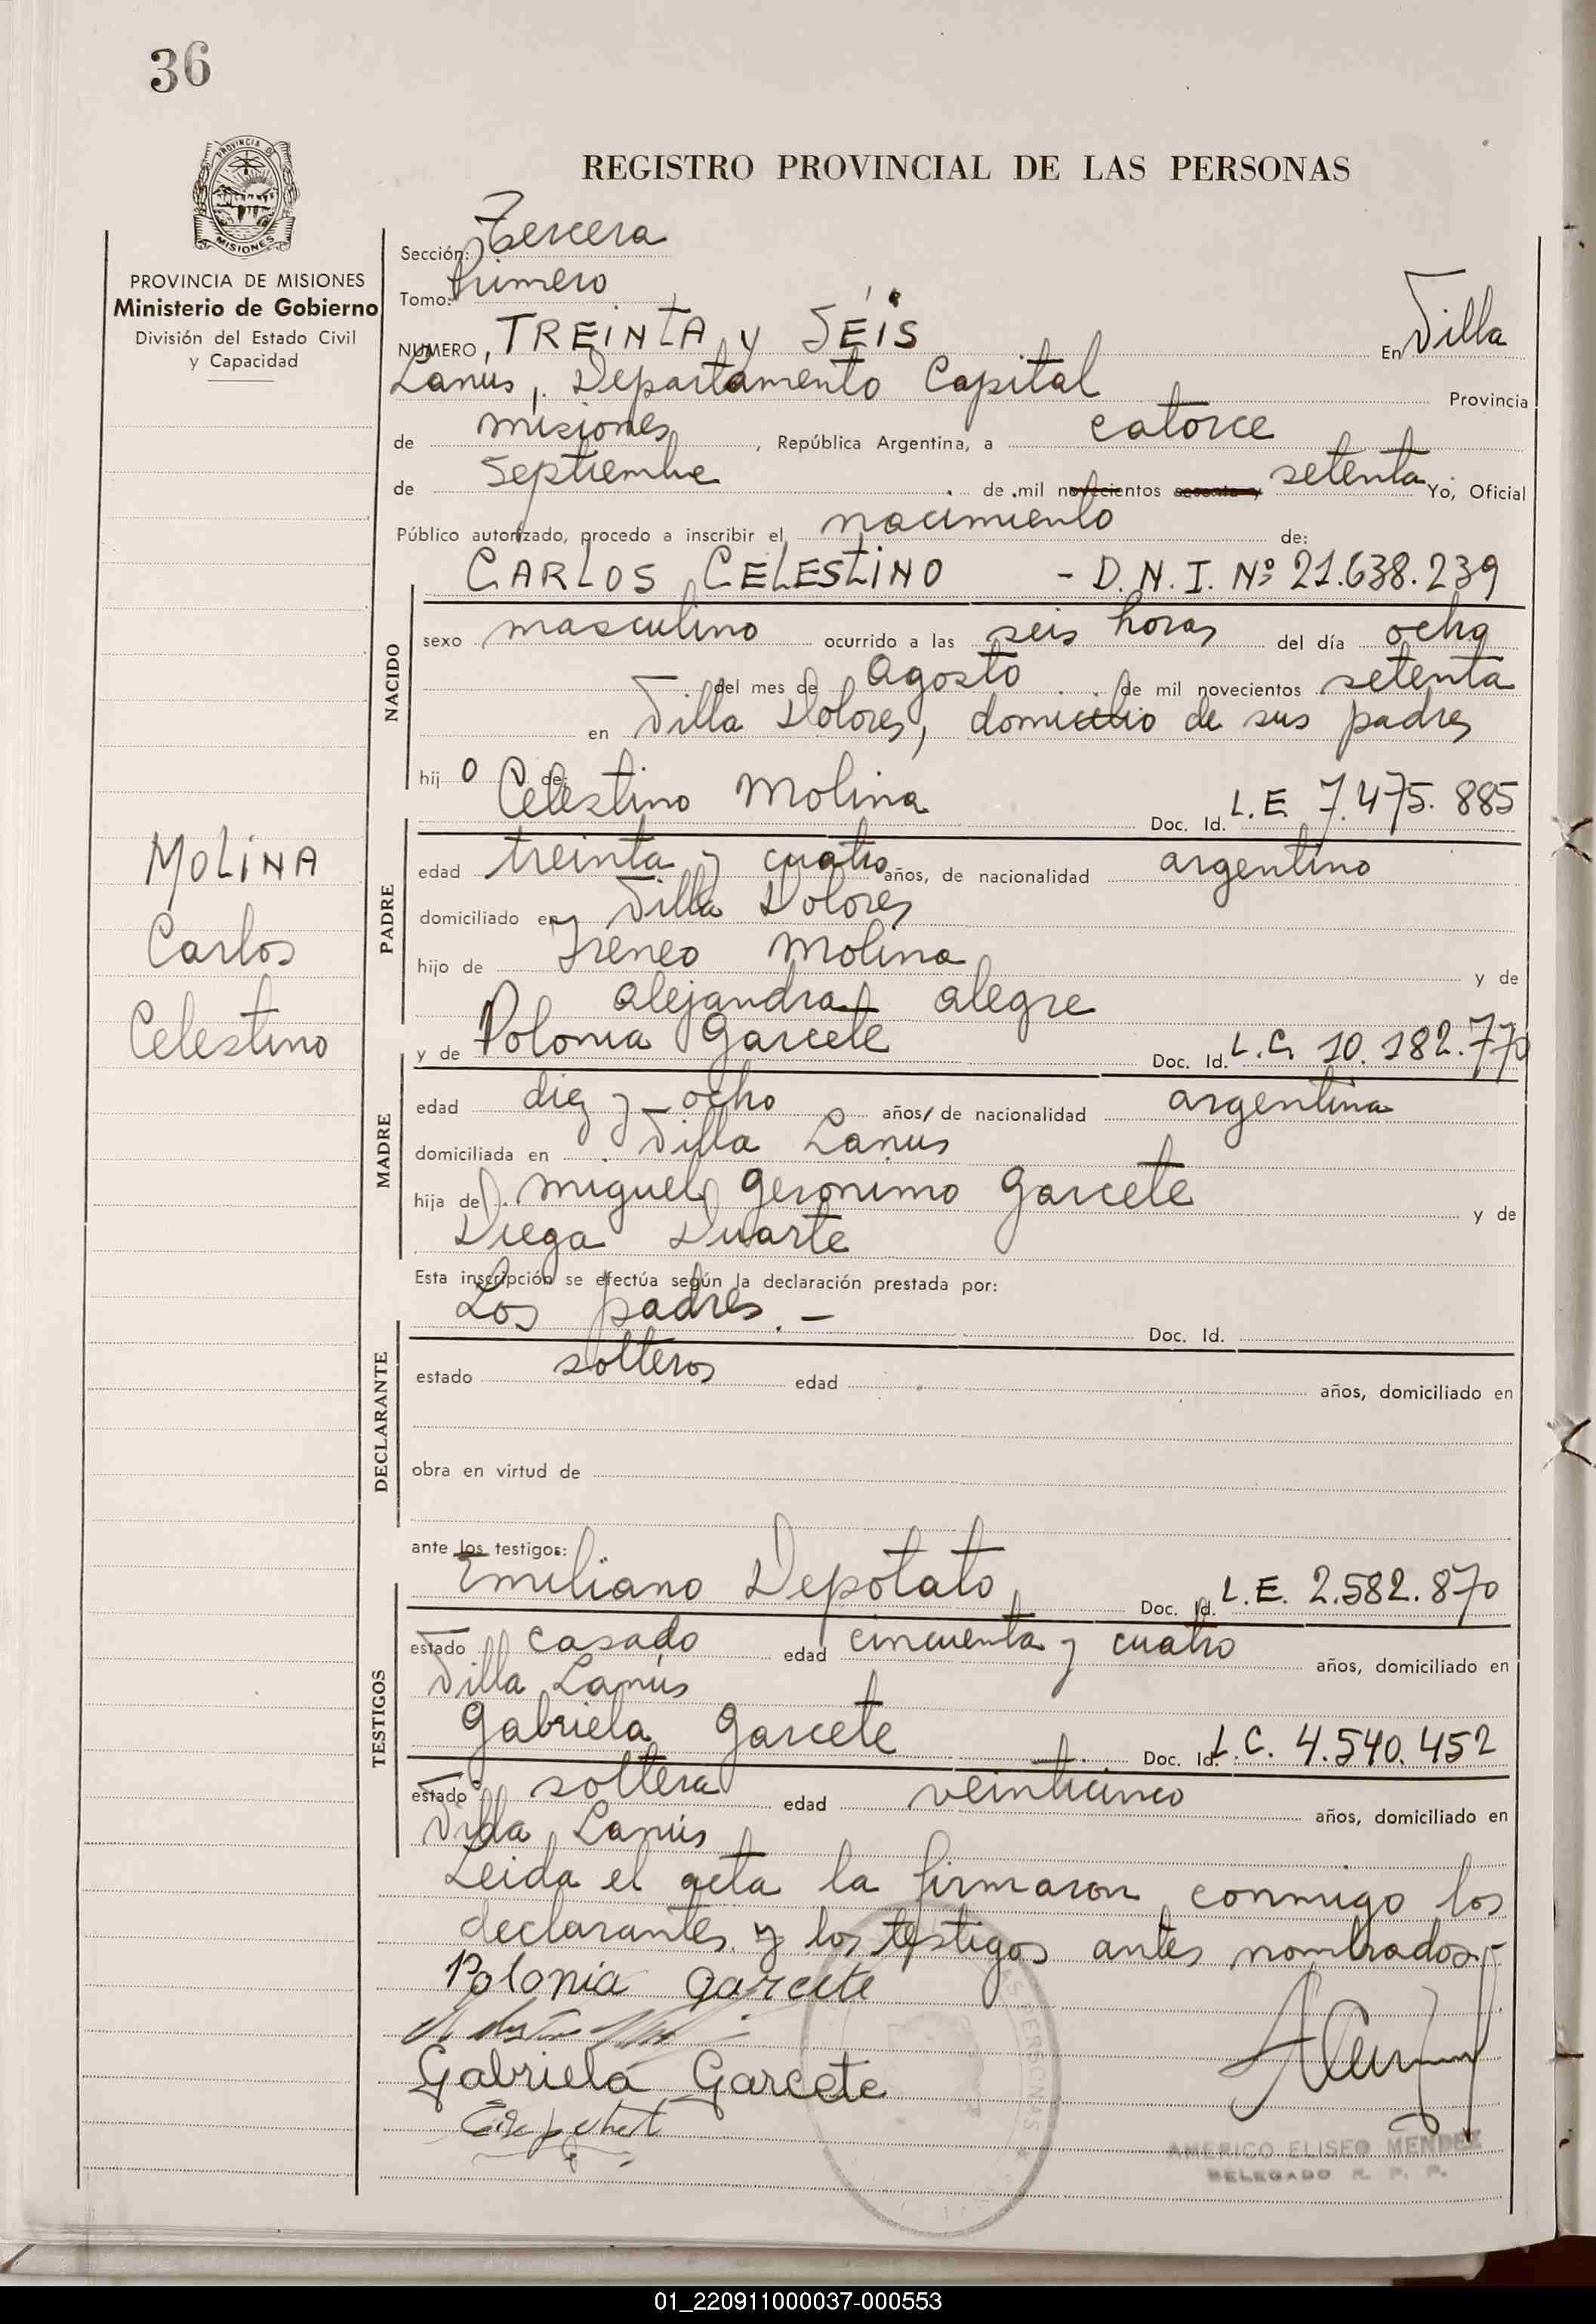 36
REGISTRO PROVINCIAL DE LAS PERSONAS
PROVINCIA DE MISIONES
PROVINCIA DE MISIONES
Ministerio de Gobierno
División del Estado Civil
y Capacidad
Sección: Tercera
Tomo: Primero
NUMERO, TREINTA y SEIS En Villa
Lanús, Departamento Capital Provincia
de misiones, República Argentina, a catorce
de Septiembre de mil novecientos setenta Yo, Oficial
Público autorizado, procedo a inscribir el nacimiento de:
CARLOS CELESTINO - D.N.I. Nº 21.638.239
NACIDO
sexo masculino ocurrido a las seis horas del día ocho
del mes de Agosto de mil novecientos setenta
en Villa Dolores, domicilio de sus padres
hij o de: Celestino Molina Doc. Id. L.E. 7.475.885
MOLINA
Carlos
Celestino
PADRE
edad treinta y cuatro años, de nacionalidad argentino
domiciliado en Villa Dolores
hijo de Ireneo Molina y de
alejandra alegre
y de Polonia Garcete Doc. Id. L.C. 10.182.770
MADRE
edad diez y ocho años, de nacionalidad argentina
domiciliada en Villa Lanus
hija de miguel geronimo garcete y de
Diega Duarte
Esta inscripción se efectúa según la declaración prestada por:
Los padres.- Doc. Id.
DECLARANTE
estado solteros edad años, domiciliado en
obra en virtud de
ante los testigos:
Emiliano Depotato Doc. Id. L.E. 2.582.870
TESTIGOS
estado casado edad cincuenta y cuatro años, domiciliado en
Villa Lanús
Gabriela garcete Doc. Id. L.C. 4.540.452
estado soltera edad veinticinco años, domiciliado en
Villa Lanús
Leida el acta la firmaron conmigo los
declarantes y los testigos antes nombrados.-
Polonia garcete
Gabriela Garcete
AMERICO ELISEO MENDEZ
DELEGADO R. P. P.
01_220911000037-000553